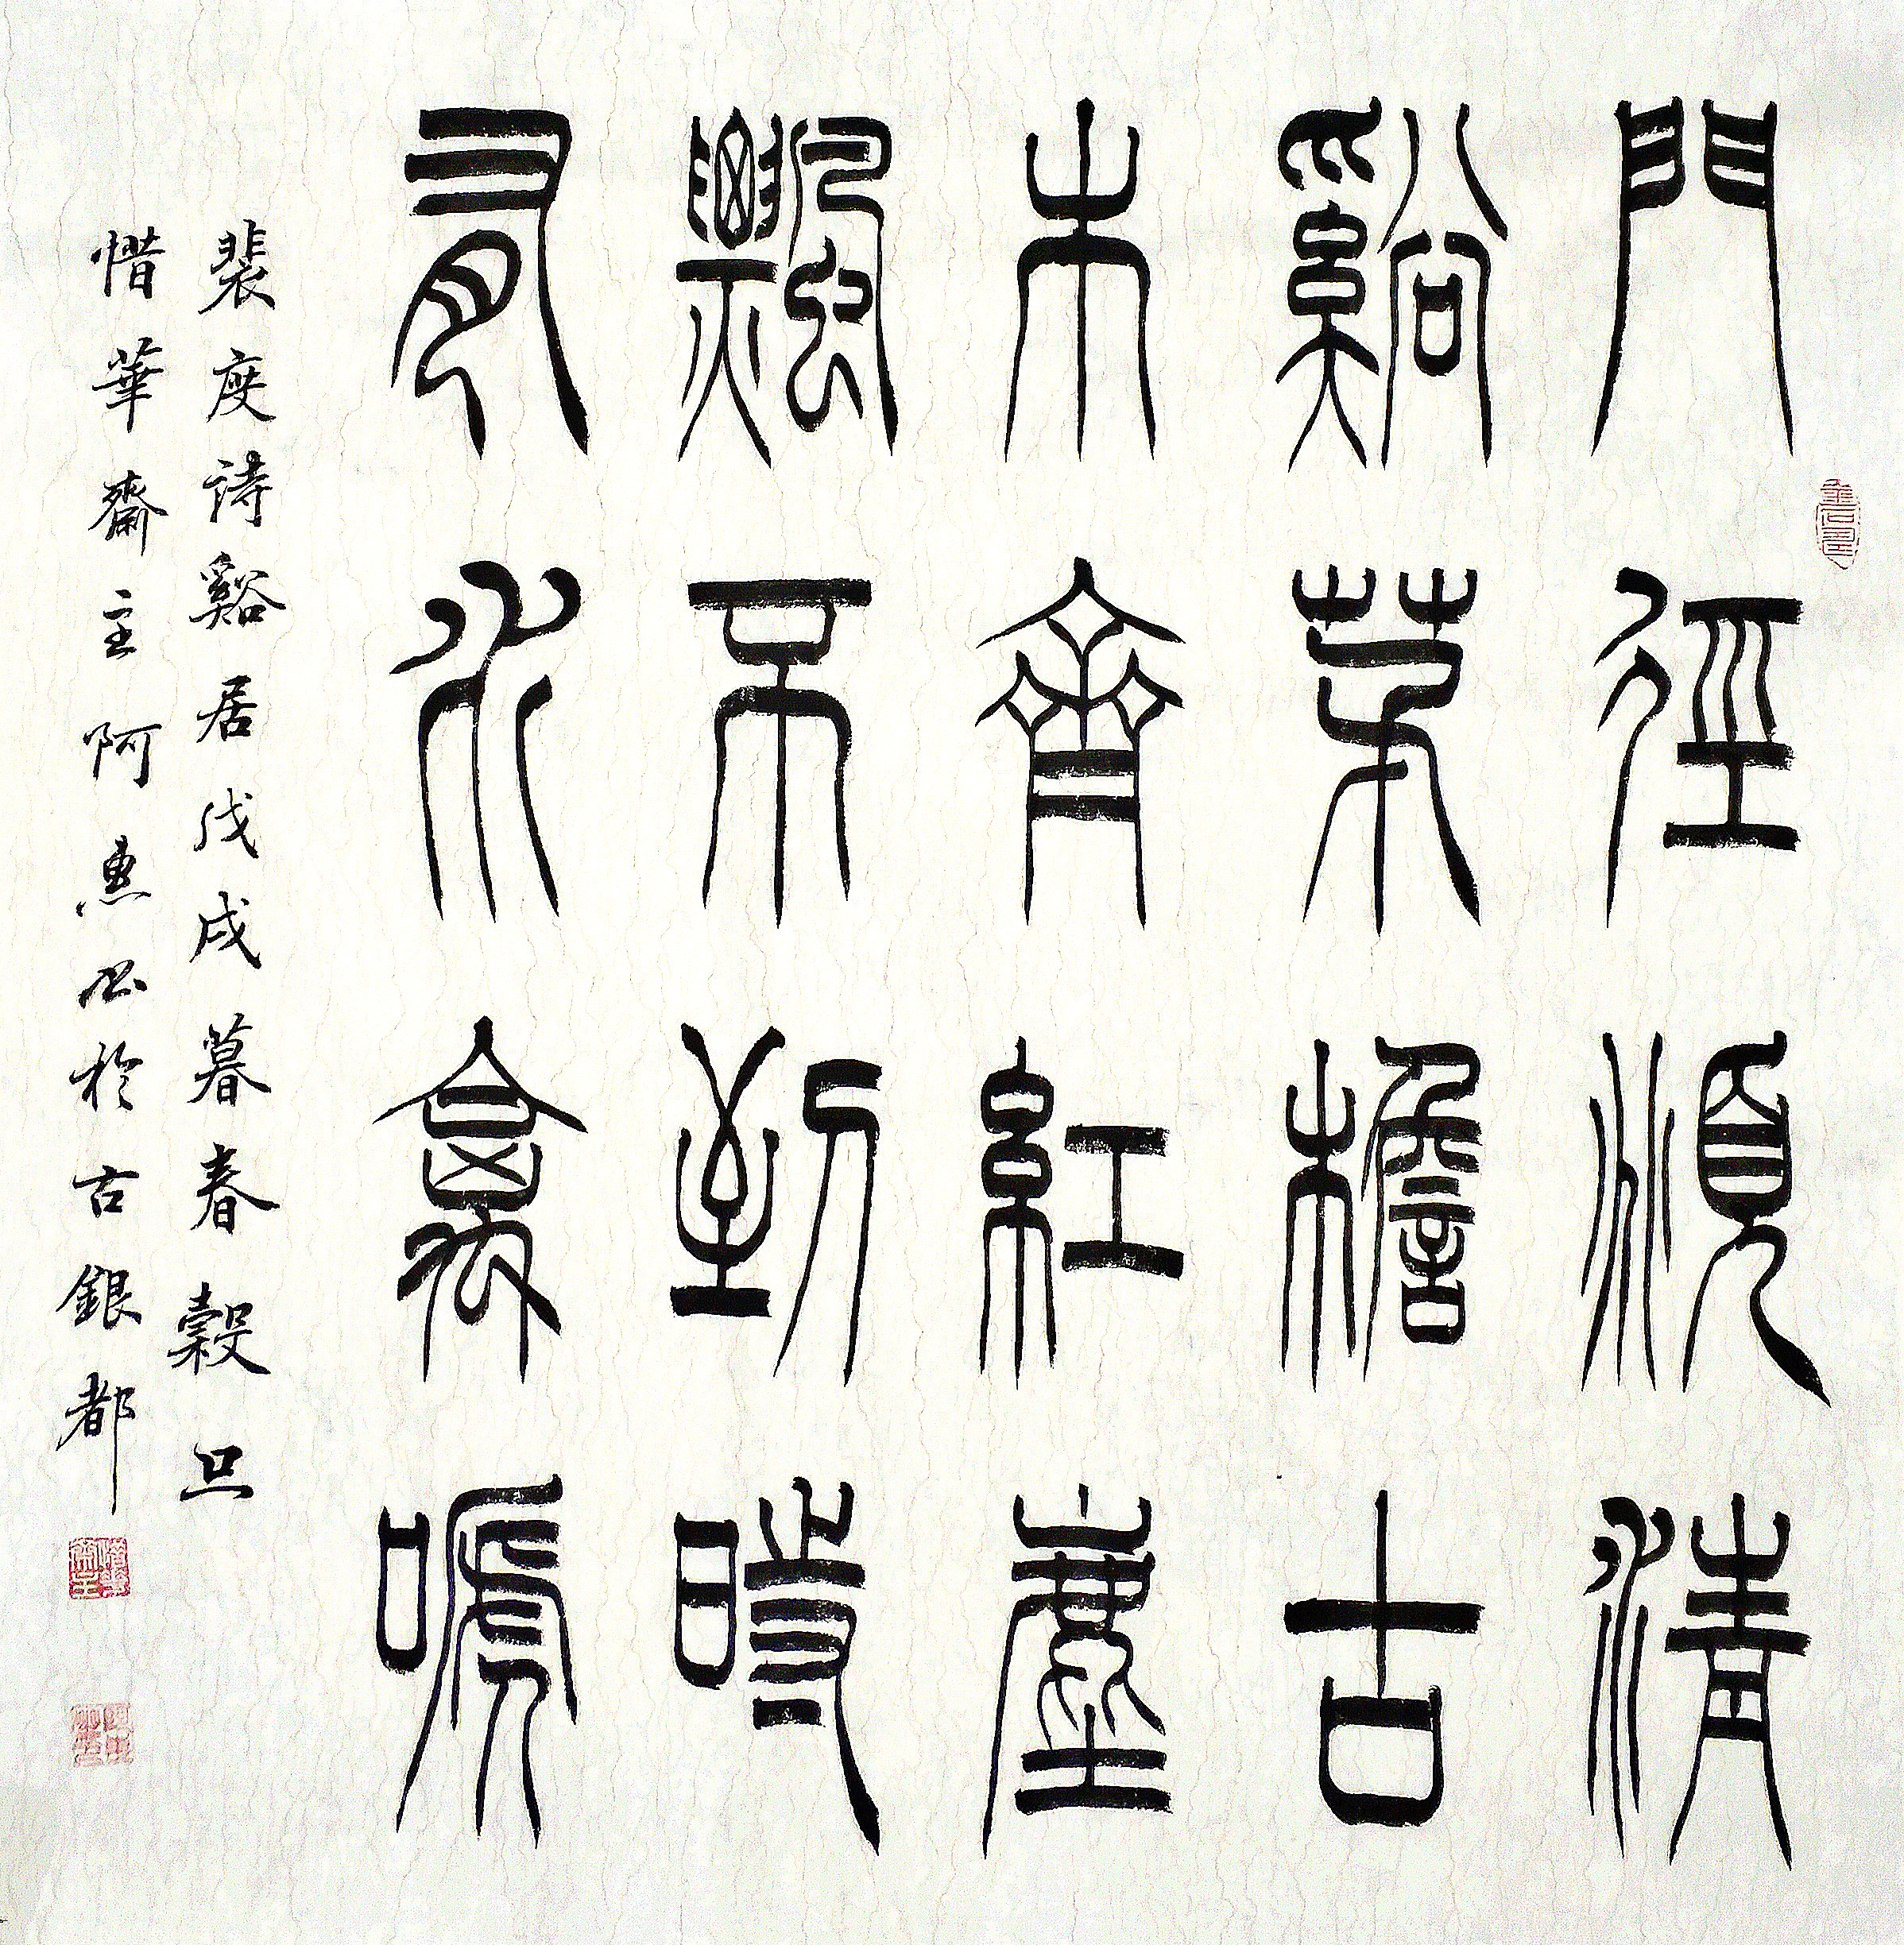 門徑頫清
谿茅檐古
木齊紅塵
飄不到時
有水禽嗁
裴度詩谿居戊戌暮春穀旦
惜華齋主阿惠書於古銀都
惜華齋主